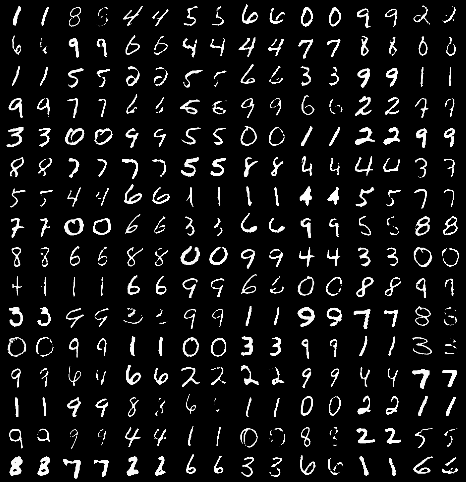 1 1 8 8 4 4 5 5 6 6 0 0 9 9 2 2
6 6 9 9 6 6 4 4 4 4 7 7 8 8 0 0
1 1 5 5 2 2 5 5 6 6 3 3 9 9 1 1
9 9 7 7 6 6 5 5 9 9 6 6 2 2 7 7
3 3 0 0 9 9 5 5 0 0 1 1 2 2 9 9
8 8 7 7 7 7 5 5 8 8 4 4 4 4 3 7
5 5 4 4 6 6 1 1 1 1 4 4 5 5 7 7
7 7 0 0 6 6 3 3 6 6 9 9 5 5 8 8
8 8 6 6 8 8 0 0 9 9 4 4 3 3 0 0
4 1 1 1 6 6 9 9 6 6 0 0 8 8 9 9
3 3 9 9 3 3 9 9 1 1 9 9 7 7 8 8
0 0 9 9 1 1 0 0 3 3 9 9 1 1 3 3
9 9 6 4 6 6 2 2 2 2 9 9 4 4 7 7
1 1 9 9 8 8 6 6 1 1 0 0 2 2 1 1
9 9 9 9 4 4 1 1 0 0 8 8 2 2 5 5
8 8 7 7 2 2 6 6 3 3 6 6 1 1 6 6